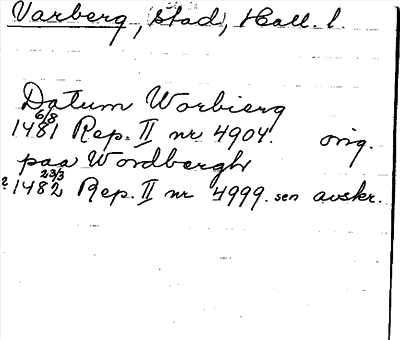 Varberg, stad, Hall. l.
Datum Worbierg
6/8
1481 Rep. II nr 4904. orig.
paa Wordberghr
23/3
? 1482 Rep. II nr 4999. sen avskr.